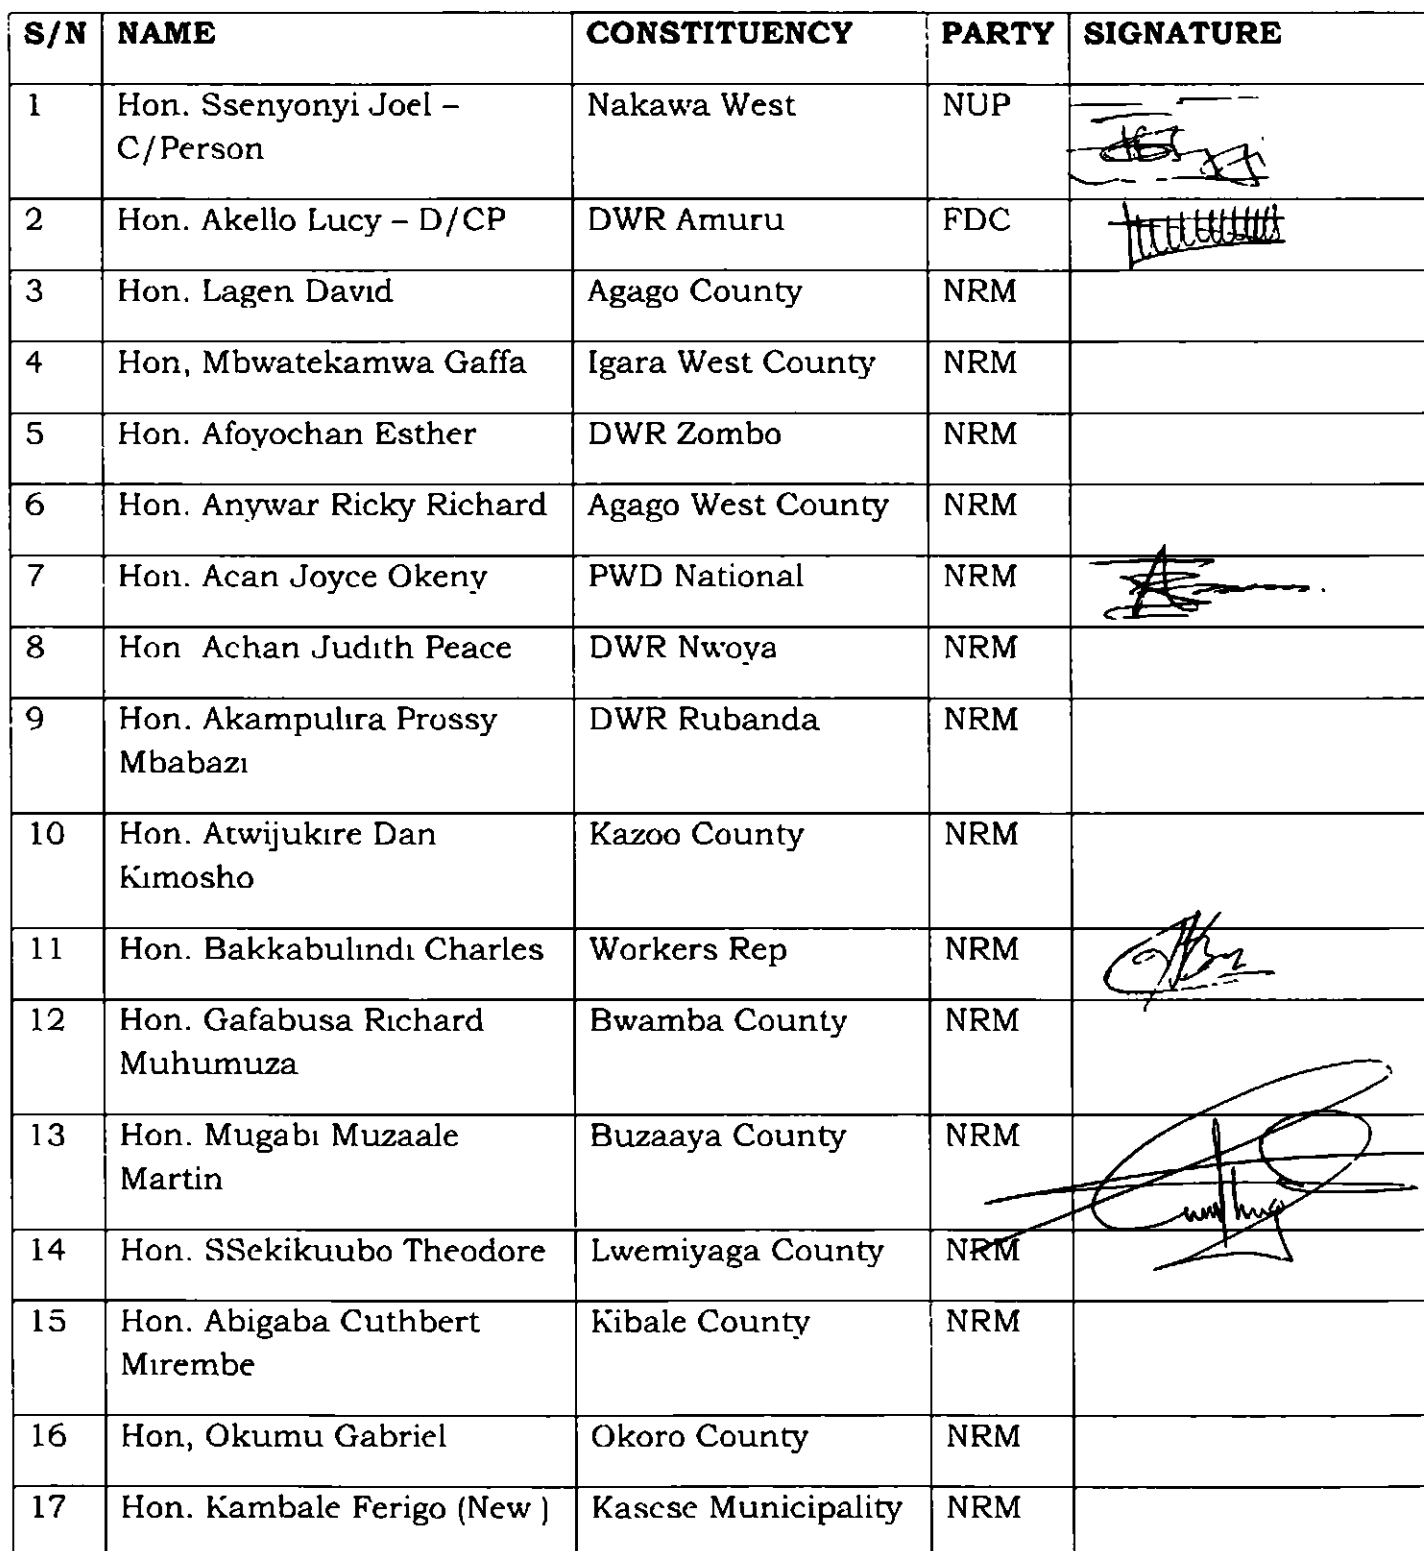 S/N NAME CONSTITUENCY PARTY SIGNATURE
1 Hon. Ssenyonyi Joel – Nakawa West NUP
C/Person
2 Hon. Akello Lucy – D/CP DWR Amuru FDC
3 Hon. Lagen David Agago County NRM
4 Hon, Mbwatekamwa Gaffa Igara West County NRM
5 Hon. Afoyochan Esther DWR Zombo NRM
6 Hon. Anywar Ricky Richard Agago West County NRM
7 Hon. Acan Joyce Okeny PWD National NRM
8 Hon Achan Judith Peace DWR Nwoya NRM
9 Hon. Akampulira Prossy DWR Rubanda NRM
Mbabazi
10 Hon. Atwijukire Dan Kazoo County NRM
Kimosho
11 Hon. Bakkabulindi Charles Workers Rep NRM
12 Hon. Gafabusa Richard Bwamba County NRM
Muhumuza
13 Hon. Mugabi Muzaale Buzaaya County NRM
Martin
14 Hon. SSekikuubo Theodore Lwemiyaga County NRM
15 Hon. Abigaba Cuthbert Kibale County NRM
Mirembe
16 Hon, Okumu Gabriel Okoro County NRM
17 Hon. Kambale Ferigo (New ) Kasese Municipality NRM